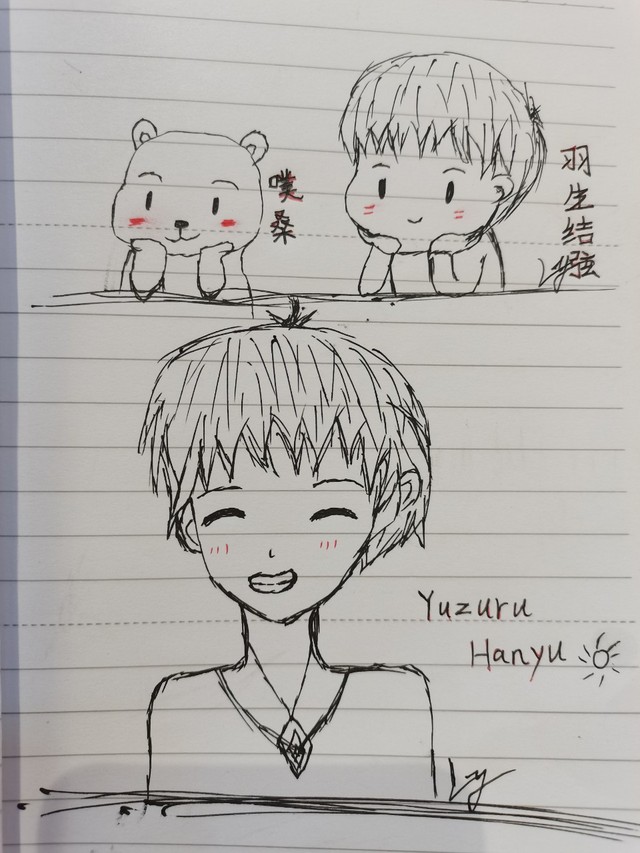 噗桑
羽生结弦
Ly
Yuzuru
Hanyu
Ly